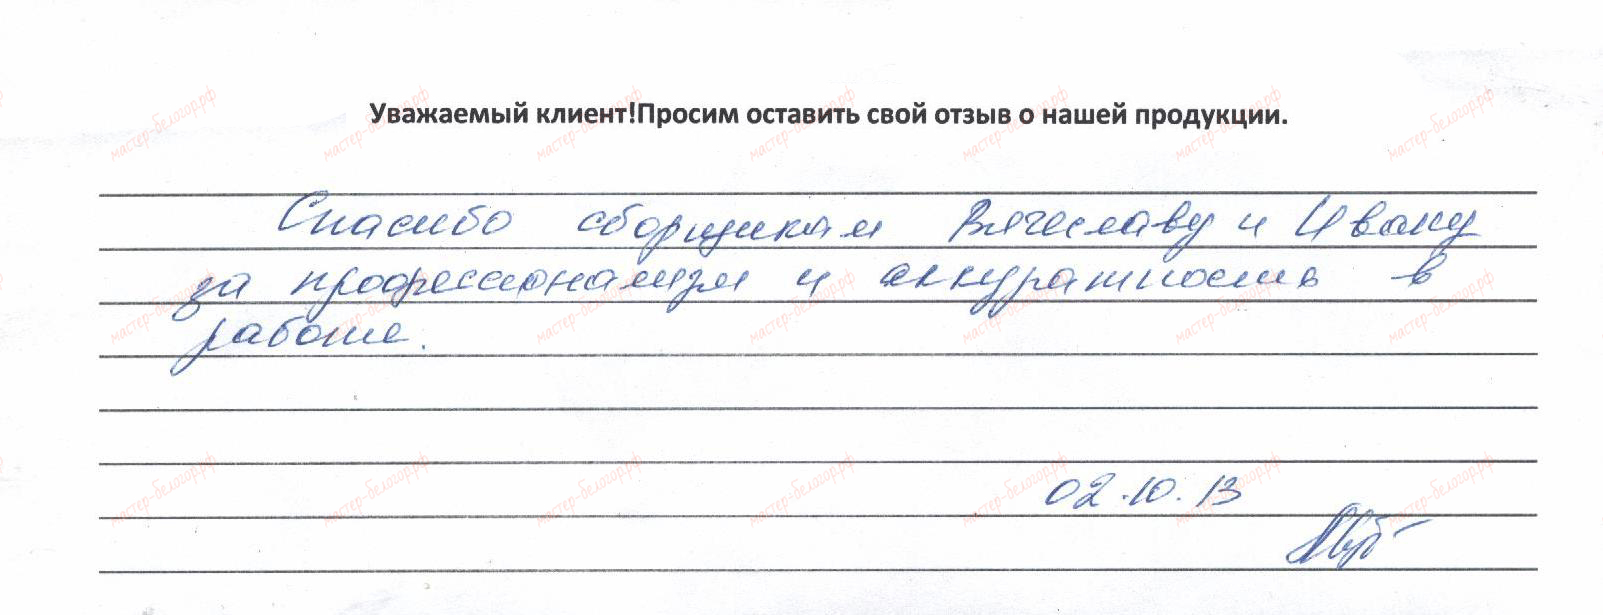 Уважаемый клиент!Просим оставить свой отзыв о нашей продукции.
Спасибо сборщикам Вячеславу и Ивану
за профессионализм и аккуратность в
работе.
02.10.13
мастер-белогор.рф